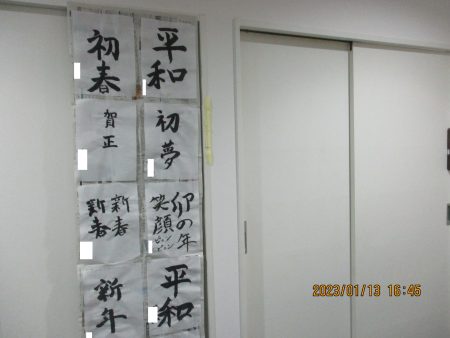 平和
初春
初夢
賀正
卯の年
笑顔
ピョンピョン
新春
新春
平和
新年
2023/01/13 16:45